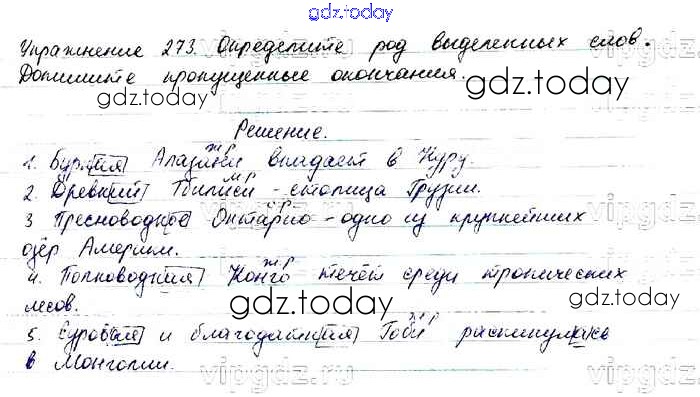 gdz.today
Упражнение 273. Определите род выделенных слов.
Допишите пропущенные окончания.
gdz.today
gdz.today
vipgdz.ru
Решение.
ж р
1. Бурная Алазани впадает в Куру.
2. Древний Тбилиси - столица Грузии.
3 Пресноводное Онтарио - одно из крупнейших
озёр Америки.
vipgdz
ж р
4. Полноводная Конго течёт среди тропических
лесов.
gdz.today
gdz.today
ж р
5. Суровая и благодатная Гоби раскинулась
в Монголии.
vipgdz.ru
vipgdz